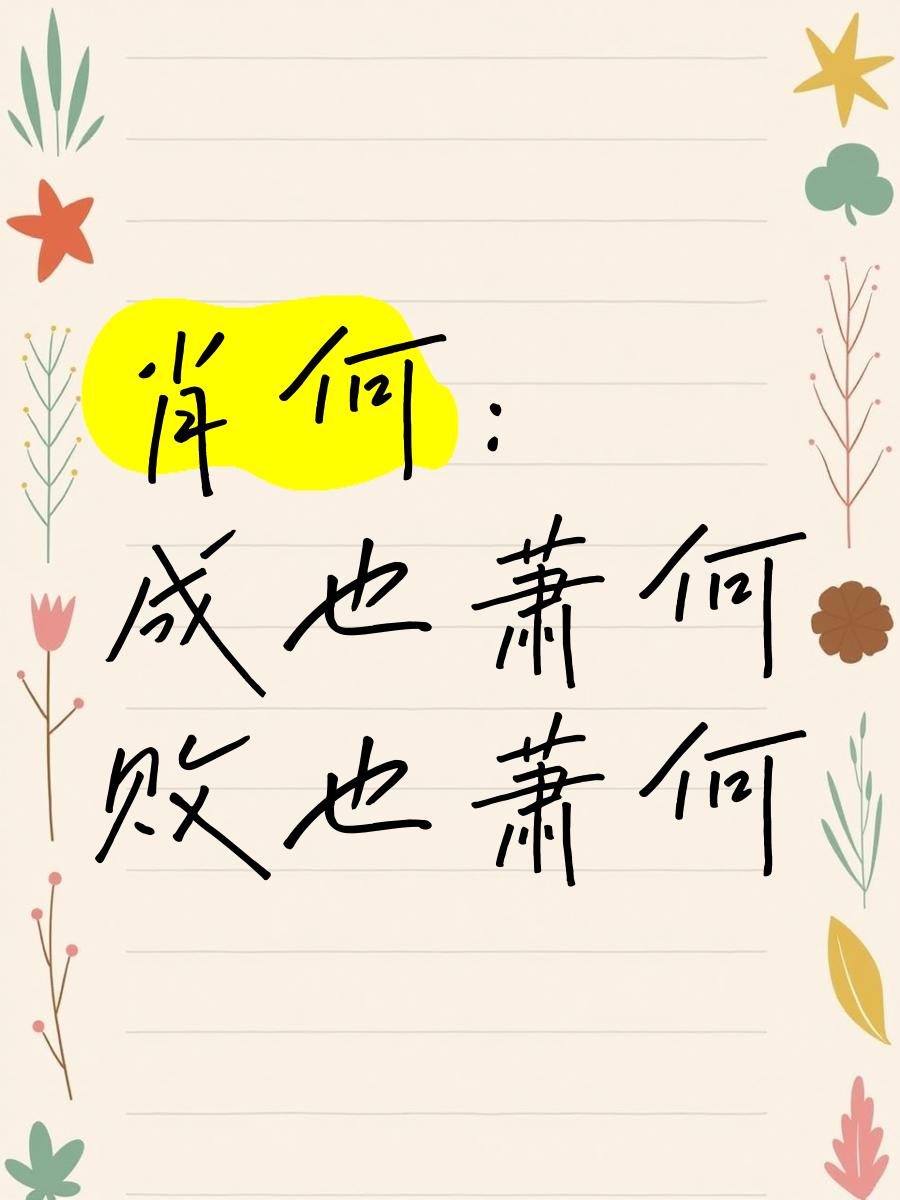 肖何：
成也萧何
败也萧何